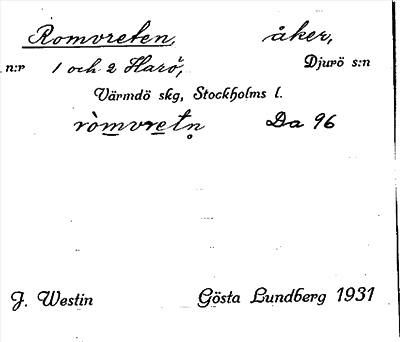 Romvreten, åker,
n:r 1 och 2 Harö, Djurö s:n
Värmdö skg, Stockholms l.
ròmvretn̥ Da 96
J. Westin Gösta Lundberg 1931